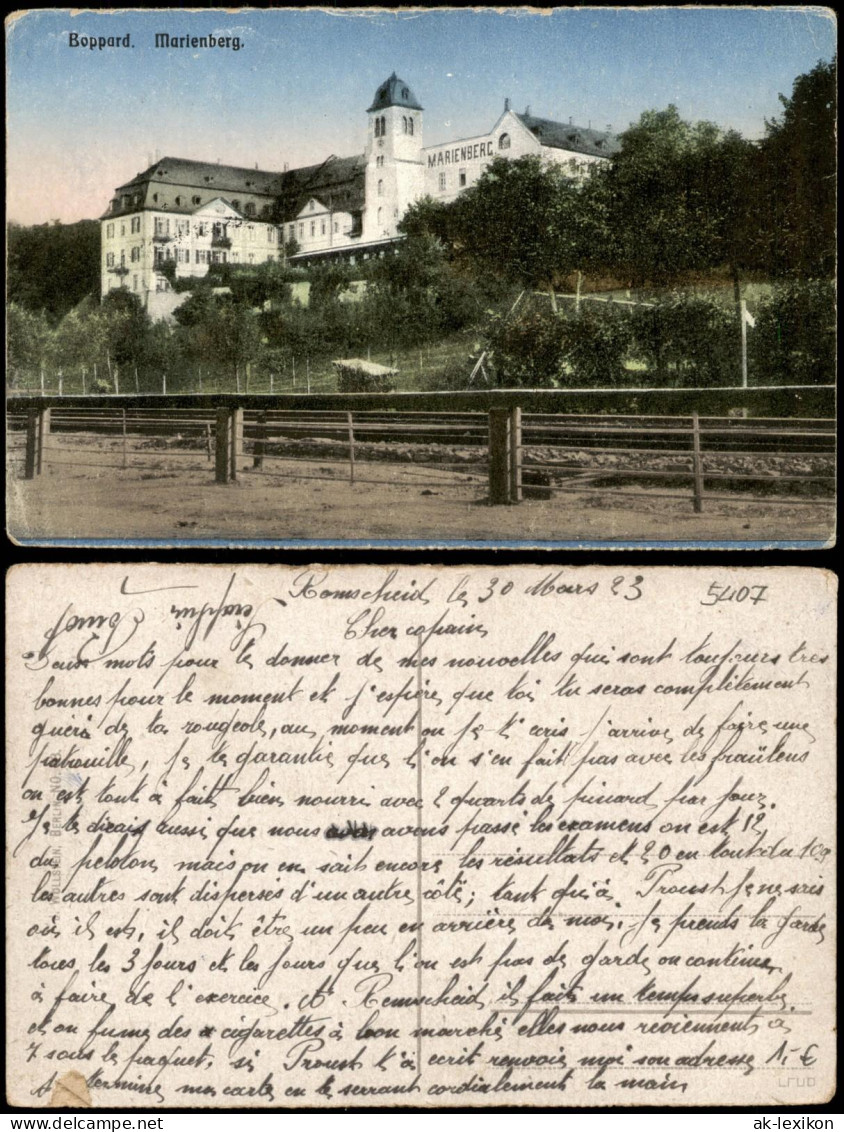 Boppard. Marienberg.
MARIENBERG
Remscheid le 30 Mars 23
5407
Cher copain
Deux mots pour te donner de mes nouvelles qui sont toujours très
bonnes pour le moment et j'espère que toi tu seras complètement
guéri de ta rougeole, au moment où je t'écris j'arrive de faire une
patrouille, je te garantie que l'on s'en fait pas avec les fraülens
on est tout à fait bien nourri avec 2 quarts de pinard par jour.
Je te dirais aussi que nous avons passé les examens on est 12
du peloton mais on en sait encore les résultats et 20 en tout du 109
les autres sont dispersés d'un autre côté; tant qu'à Proust je ne sais
où il est, il doit être un peu en arrière de moi. Je prends la garde
tous les 3 jours et les jours que l'on est pas de garde on continue
à faire de l'exercice. A Remscheid il fait un temps superbe
et on fume des cigarettes à bon marché elles nous reviennent à
7 sous le paquet, si Proust t'a écrit renvoie moi son adresse
1,- €
termine ma carte en te serrant cordialement la main
BERLIN
ak-lexikon